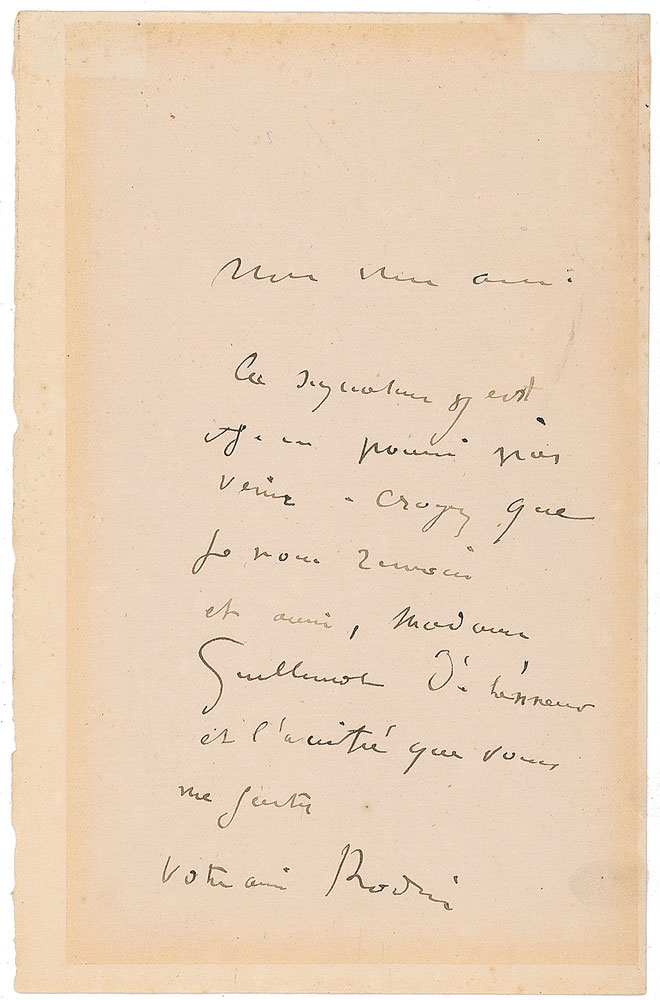 Mon cher ami
La signature y est
et je ne pourrai pas
venir - croyez que
je vous remercie
et aussi, Madame
Guillemot De l'honneur
et l'amitié que vous
me faites
Votre ami Rodin